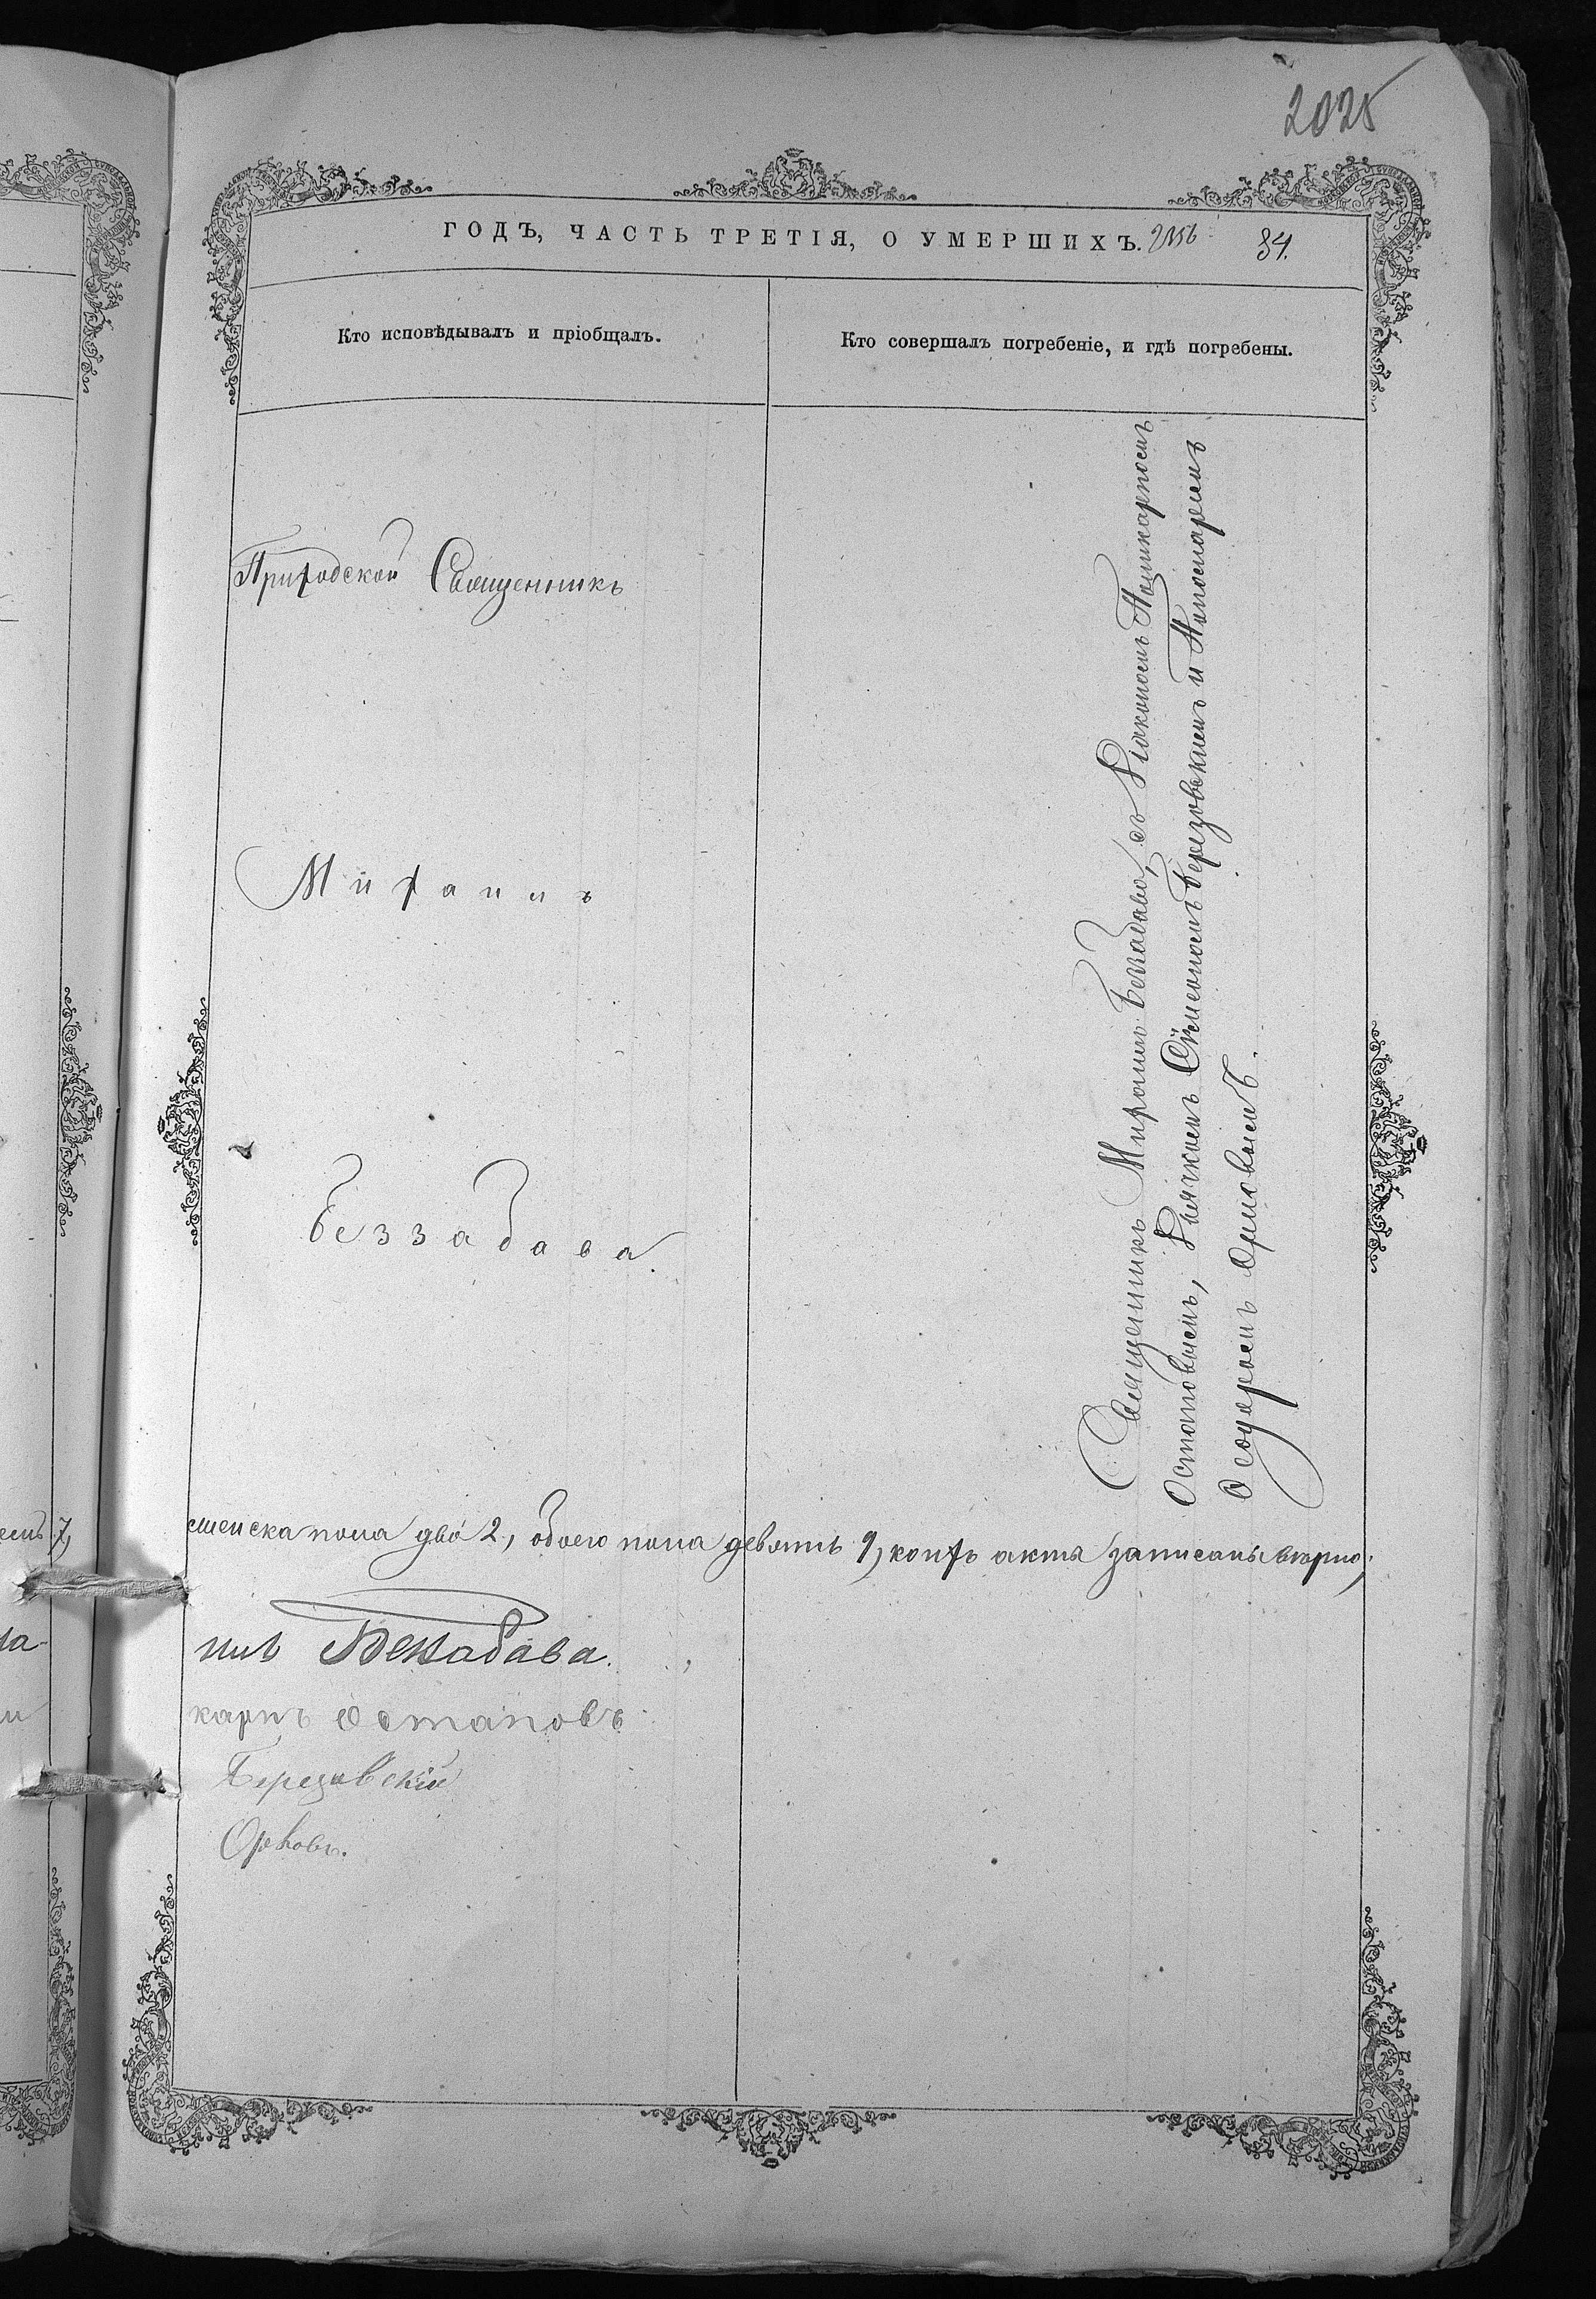 2025
ГОДЪ, ЧАСТЬ ТРЕТІЯ, О УМЕРШИХЪ. 84.
Кто исповѣдывалъ и пріобщалъ.
Кто совершалъ погребеніе, и гдѣ погребены.
Приходской Священникъ
Михаилъ
Беззабава.
Священникъ Михаилъ Беззабава, съ Діакономъ Поликарпомъ
Остаповымъ, Дьячкомъ Сѵмеономъ Березовскимъ и Пономаремъ
Ѳеодоромъ Орловымъ.
7,
женска пола два 2, обоего пола девять 9, коихъ акты записаны вѣрно;
илъ Беззабава.
карпъ Остаповъ
Березовскій
Орловъ.